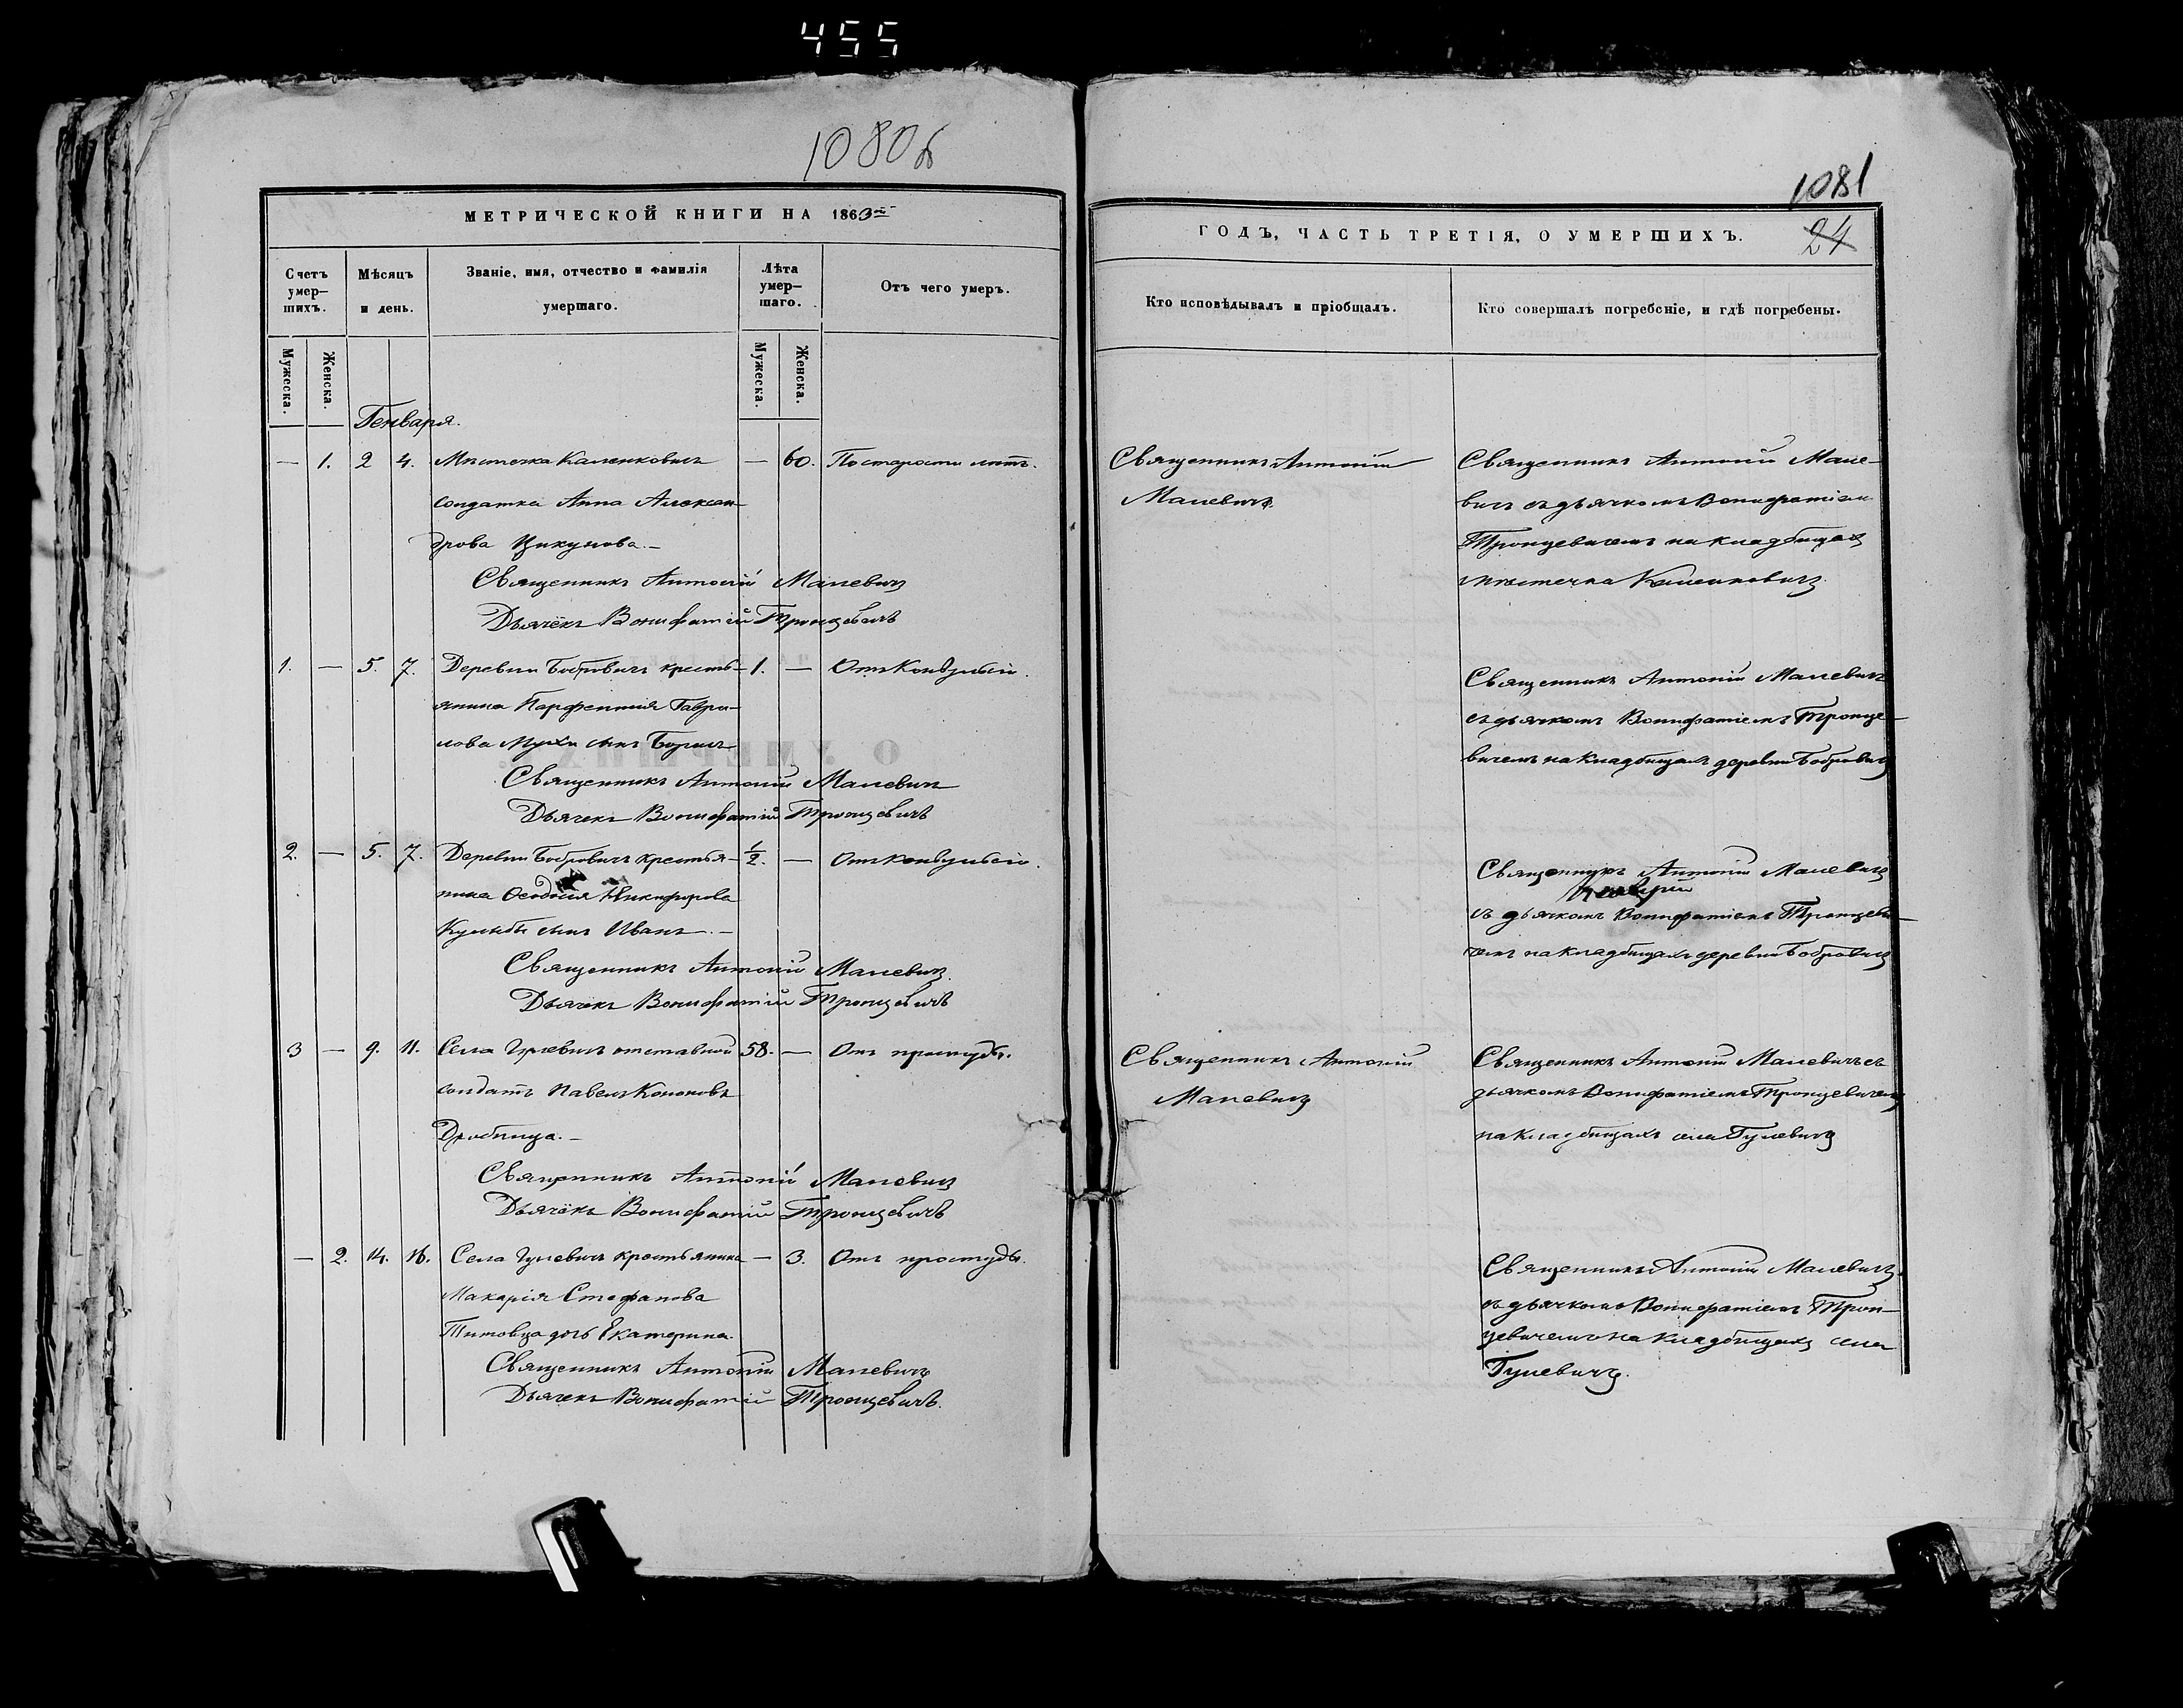 455
1080б
МЕТРИЧЕСКОЙ КНИГИ НА 1863
Счетъ умер— шихъ.
Мѣсяцъ и день.
Званіе, имя, отчество и фамилія умершаго.
Лѣта умер— шаго.
Отъ чего умеръ.
Мужеска.
Женска.
Мужеска.
Женска.
Генваря.
— 1. 2 4. Мѣстечка Каленковичъ — 60. По старости лѣтъ.
солдатка Анна Алексан—
дрова Цикунова.—
Священникъ Антоній Малевичъ
Дьячёкъ Вонифатій Тронцевичъ
1. — 5. 7. Деревни Бобровичъ кресть— 1. — Отъ конвульсіи.
янина Парфентія Гаври—
лова Мухи сынъ Борисъ
Священникъ Антоній Малевичъ
Дьячекъ Вонифатій Тронцевичъ
2. — 5. 7. Деревни Бобровичъ крестья— 1/2. — Отъ конвульсіи.
нина Ѳеодосія Никифорова
сынъ Иванъ.—
Священникъ Антоній Малевичъ.
Дьячекъ Вонифатій Тронцевичъ
3 — 9. 11. Села Гулевичъ отставной 58. — Отъ простуды.
солдатъ Павелъ Кононовъ
Дробница.—
Священникъ Антоній Малевичъ
Дьячёкъ Вонифатій Тронцевичъ
— 2. 14. 16. Села Гулевичъ крестьянина — 3. Отъ простуды.
Макарія Стефанова
Титовца дочь Екатерина.
Священникъ Антоній Малевичъ
Дьячекъ Вонифатій Тронцевичъ.
1081
24
ГОДЪ, ЧАСТЬ ТРЕТІЯ, О УМЕРШИХЪ.
Кто исповѣдывалъ и пріобщалъ.
Кто совершалъ погребеніе, и гдѣ погребены.
Священникъ Антоній
Малевичъ.
Священникъ Антоній Мале—
вичъ съ дьячкомъ Вонифатіемъ
Тронцевичемъ на кладбищахъ
мѣстечка Каленковичъ.
Священникъ Антоній Малевичъ
съ дьячкомъ Вонифатіемъ Тронце—
вичемъ на кладбищахъ деревни Бобровичъ
Священникъ Антоній Малевичъ
съ дьячкомъ Вонифатіемъ Тронцеви—
чемъ на кладбищахъ деревни Бобровичъ
Священникъ Антоній
Малевичъ
Священникъ Антоній Малевичъ съ
дьячкомъ Вонифатіемъ Тронцевичемъ
на кладбищахъ села Гулевичъ
Священникъ Антоній Малевичъ
съ дьячкомъ Вонифатіемъ Трон—
цевичемъ на кладбищахъ села
Гулевичъ.